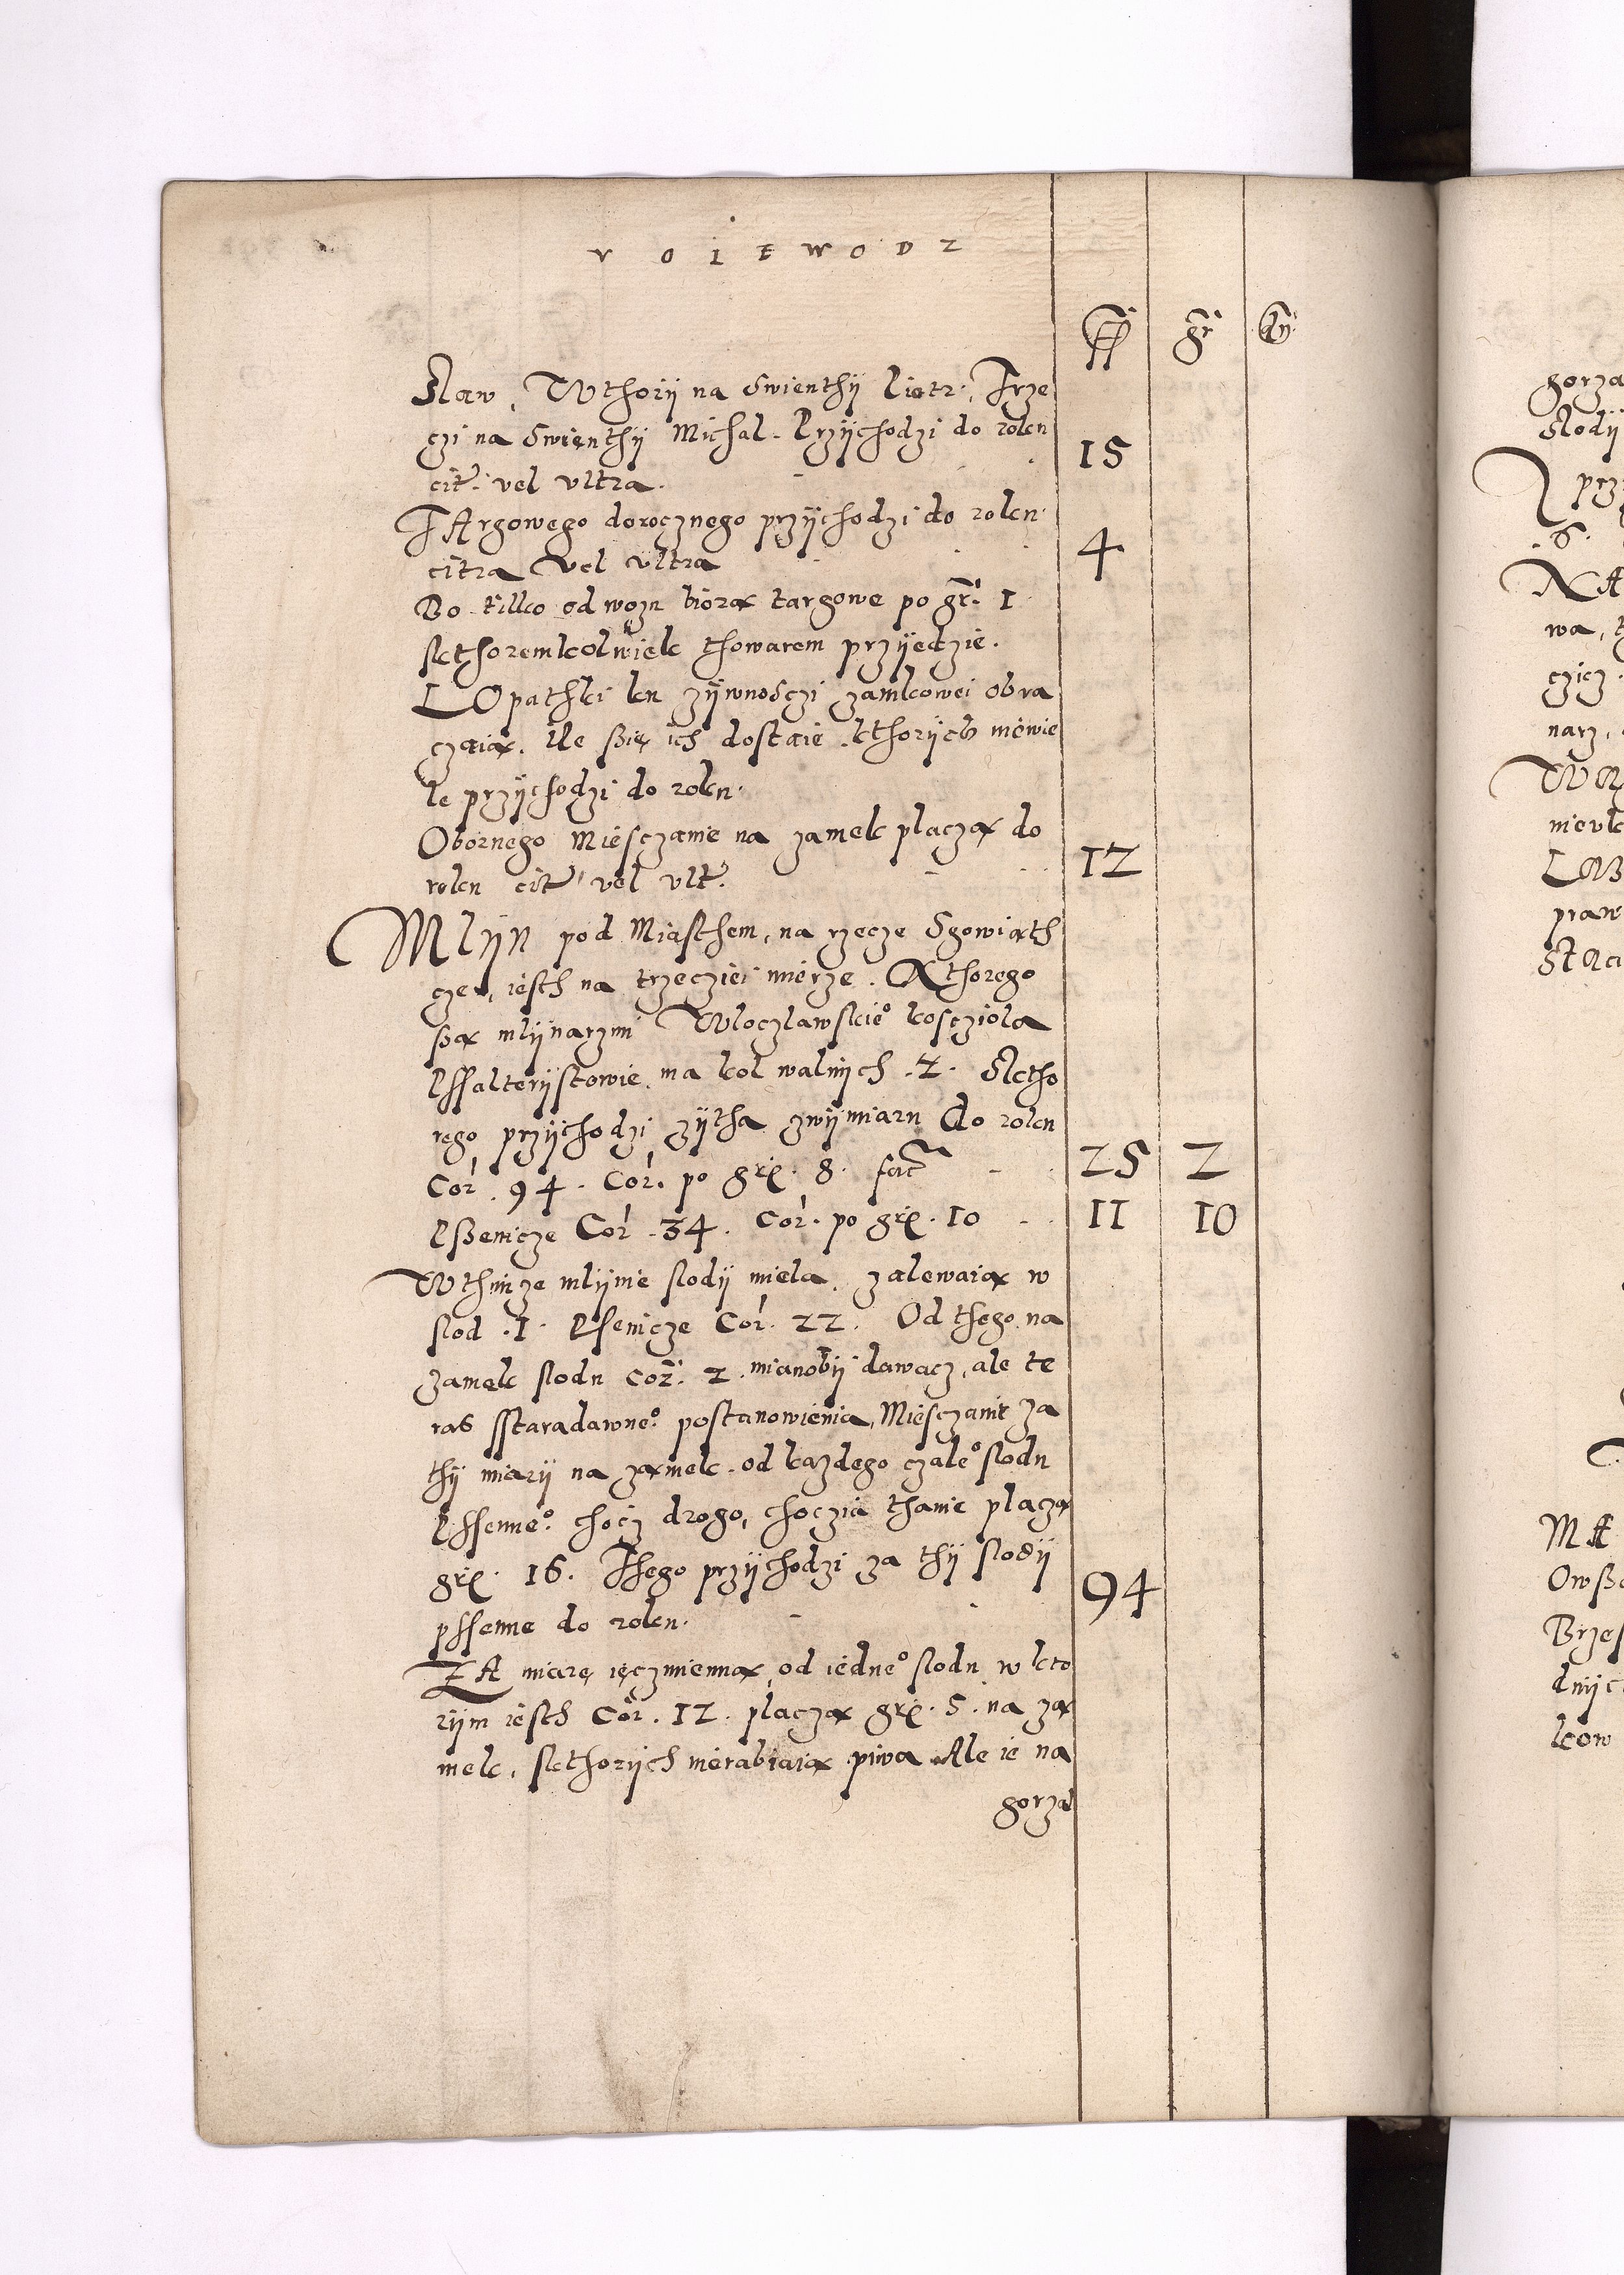 VOIEWODZ
ff gr dn
Slaw, Wthorÿ na Swienthÿ Piotr. Trze
czi na Swienthÿ Michal. Przÿchodzi do roku
cit. vel ultra. 15
TArgowego dorocznego przÿchodzi do roku
citra vel ultra 4
Bo tilko od wozu biorą targowe po gr. 1
sktoremkolwiek thowarem przÿedzie.
LOpathki ku zÿwnosczi zamkowei obra
czaią. Ile się ich dostaie kthorÿch niewie
le przÿchodzi do roku.
Obornego Miesczanie na zamek placzą do
roku cit. vel ult. 12
MLÿN pod Miasthem, na rzecze Sgowiąth
cze, iesth na trzecziei mierze. Kthorego
są mlÿnarzmi Wloczlawskieo kosciola
Psalterÿstowie. ma kol walnÿch .2. Sktho
rego przÿchodzi zÿtha zwÿmiaru do roku
Cor. 94. Cor. po grx. 8. fac 25 2
Pßenicze Cor. 34. Cor. po grx. 10 11 10
Wthimze mlÿnie slodÿ miela. zalewaią w
slod .1. Psenicze Cor. 22. Od thego na
zamek slodu cor. 2. mianobÿ dawacz, ale te
ras sstaradawneo. postanowienia, Miesczanie za
thÿ miarÿ na zamek. od kazdego czaleo slodu
Pssenneo. chocz drogo, choczia thanie placzą
grx. 16. Thego przÿchodzi za thÿ slodÿ
pssenne do roku. 94
ZA miarę ięczmienną od iedneo slodu w kto
rÿm iesth Cor. 12. placzą grx. 5. na za
mek, skthorÿch nierabiaią piwa Ale ie na
gorza
gorza
Slodÿ
prz
.6.
NA
wa,
narz,
prawo
MA
Owß
Brzes
dnÿc
kow